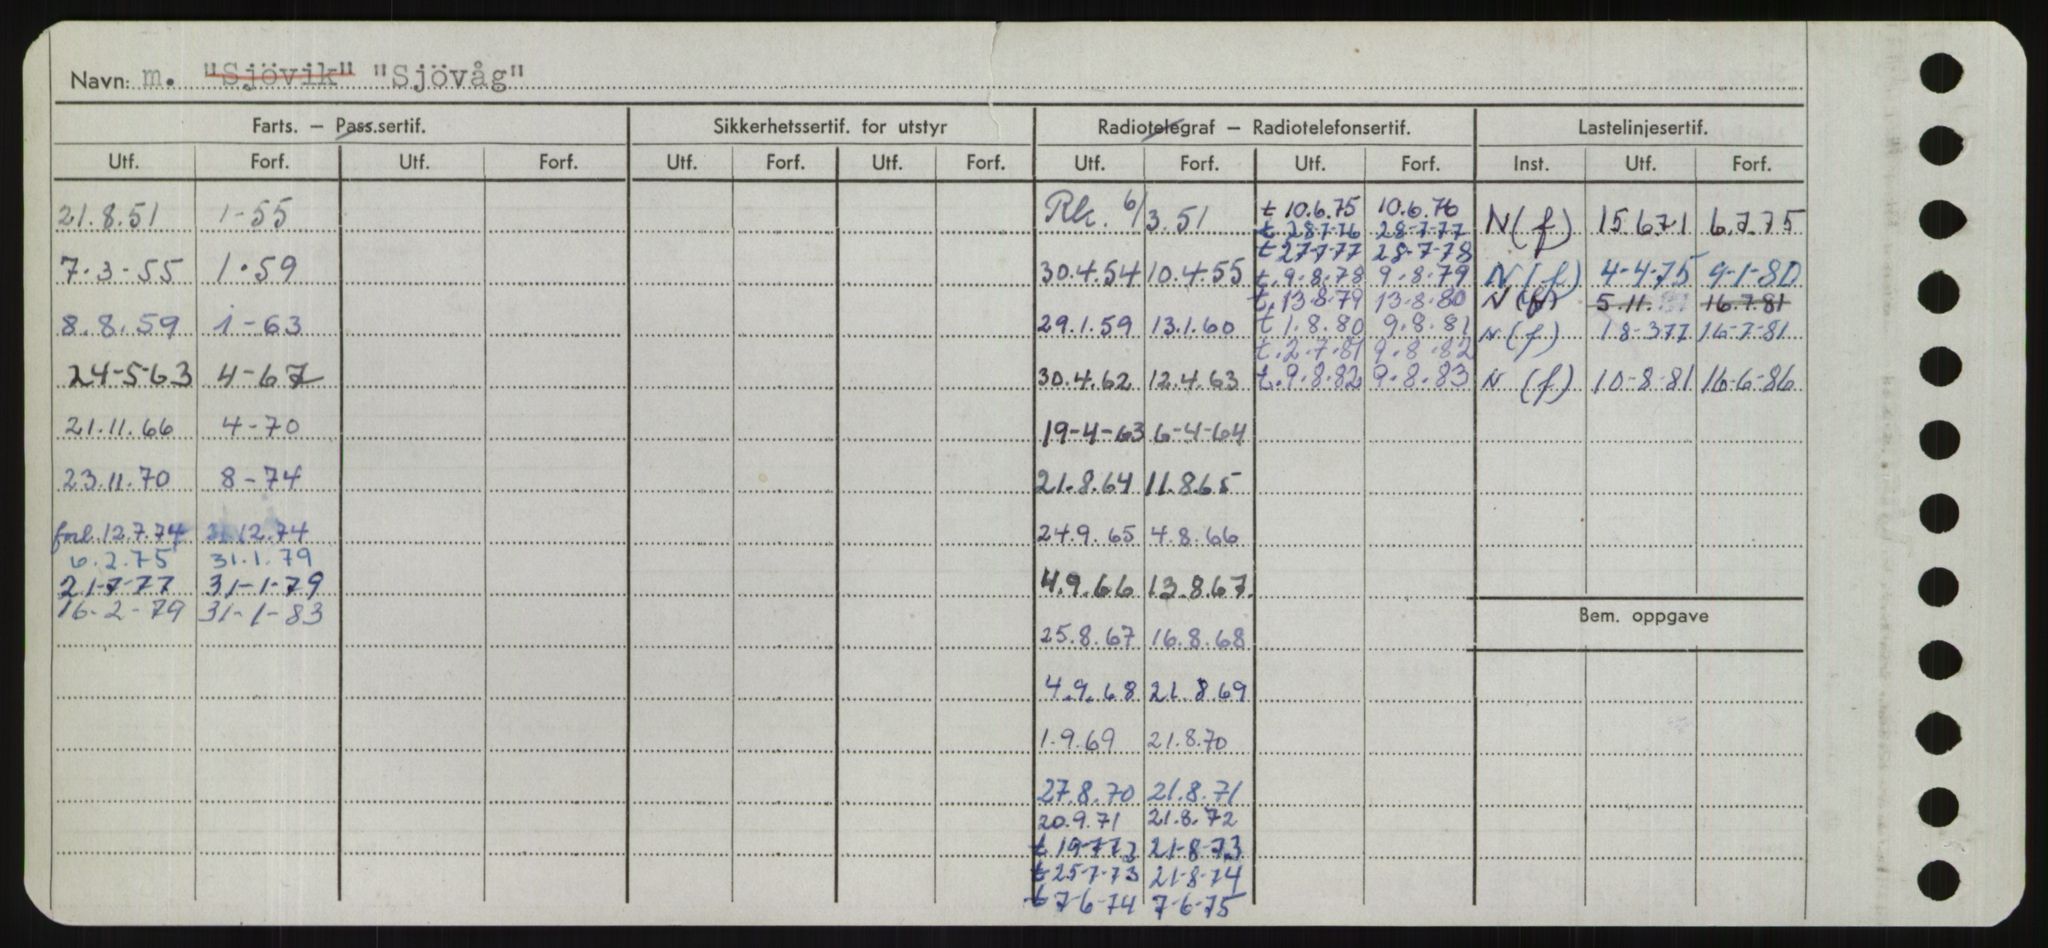 Navn: m. "Sjövik" "Sjövåg"
Farts. – Pass.sertif. Sikkerhetssertif. for utstyr Radiotelegraf – Radiotelefonsertif. Lastelinjesertif.
Utf. Forf. Utf. Forf. Utf. Forf. Utf. Forf. Utf. Forf. Utf. Forf. Inst. Utf. Forf.
21.8.51 1-55 Rk. 6/3.51 t 10.6.75 10.6.76 N(f) 15.671 6.7.75
t 28-7-76 28-7-77
t 27-7-77 28-7-78
7.3-55 1.59 30.4.54 10.4.55 t.9.8.78 9.8.79 N(f) 4-4-75 9-1-80
t.13.8.79 13.8.80 N(f) 5.11. 16.7.81
8.8.59 1-63 29.1.59 13.1.60 t.1.8.80 9.8.81 N(f) 18-377 16-7-81
t.2.7.81 9.8.82
24-5-63 4-67 30.4.62 12.4.63 t.9.8.82 9.8.83 N(f) 10-8-81 16-6-86
21.11.66 4-70 19-4-63 6-4-64
23.11.70 8-74 21.8.64 11.8.65
forl. 12.7.74 12.74 24.9.65 4.8.66
6.2.75 31.1.79
21-7-77 31-1-79 4.9.66 13.8.67.
16-2-79 31-1-83
Bem. oppgave
25.8.67 16.8.68
4.9.68 21.8.69
1.9.69 21.8.70
27.8.70 21.8.71
20.9.71 21.8.72
t 19-773 21-8-73
t 25-7-73 21-8-74
t 7-6-74 7-6-75